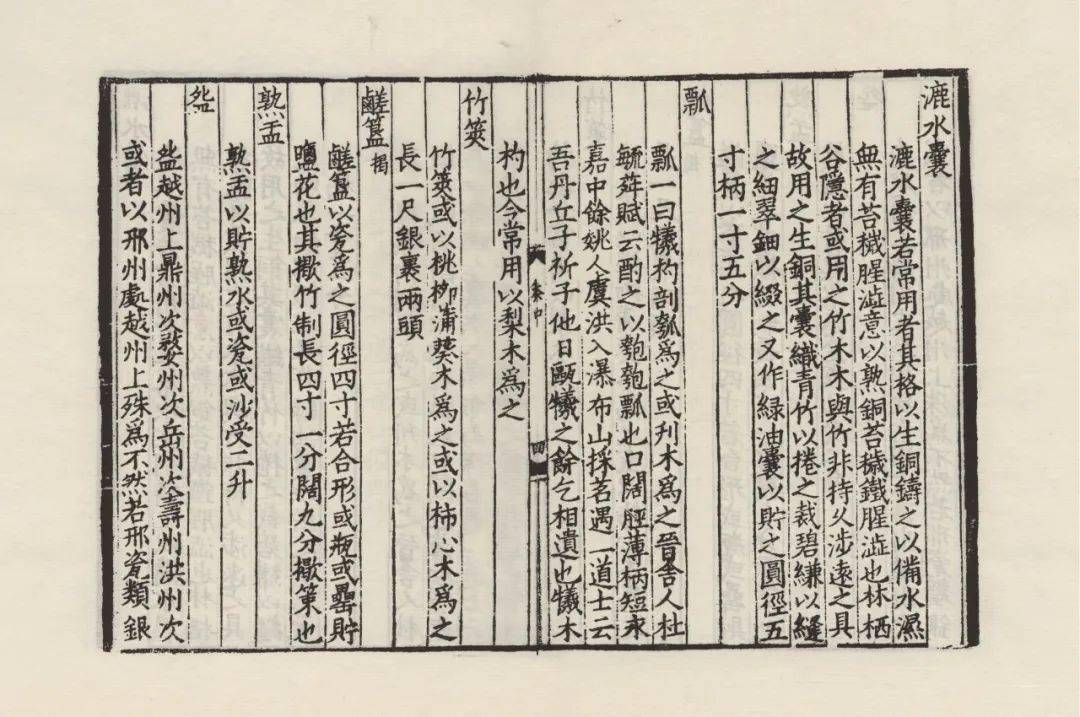 漉水囊
漉水囊若常用者其格以生銅鑄之以備水濕
無有苔穢腥澁意以熟銅苔穢鐵腥澁也林栖
谷隱者或用之竹木木與竹非持久涉遠之具
故用之生銅其囊織青竹以捲之裁碧縑以縫
之細翠鈿以綴之又作緑油囊以貯之圓徑五
寸柄一寸五分
瓢
瓢一曰犧杓剖瓠爲之或刋木爲之晉舍人杜
毓荈賦云酌之以匏匏瓢也口闊脛薄柄短永
嘉中餘姚人虞洪入瀑布山採茗遇一道士云
吾丹丘子祈子他日甌犧之餘乞相遺也犧木
中
四
杓也今常用以梨木爲之
竹筴
竹筴或以桃柳蒲葵木爲之或以柿心木爲之
長一尺銀裹兩頭
鹺簋 揭
鹺簋以瓷爲之圓徑四寸若合形或瓶或罍貯
鹽花也其揭竹制長四寸一分闊九分揭策也
熟盂
熟盂以貯熟水或瓷或沙受二升
盌
盌越州上鼎州次婺州次岳州次壽州洪州次
或者以邢州處越州上殊爲不然若邢瓷類銀